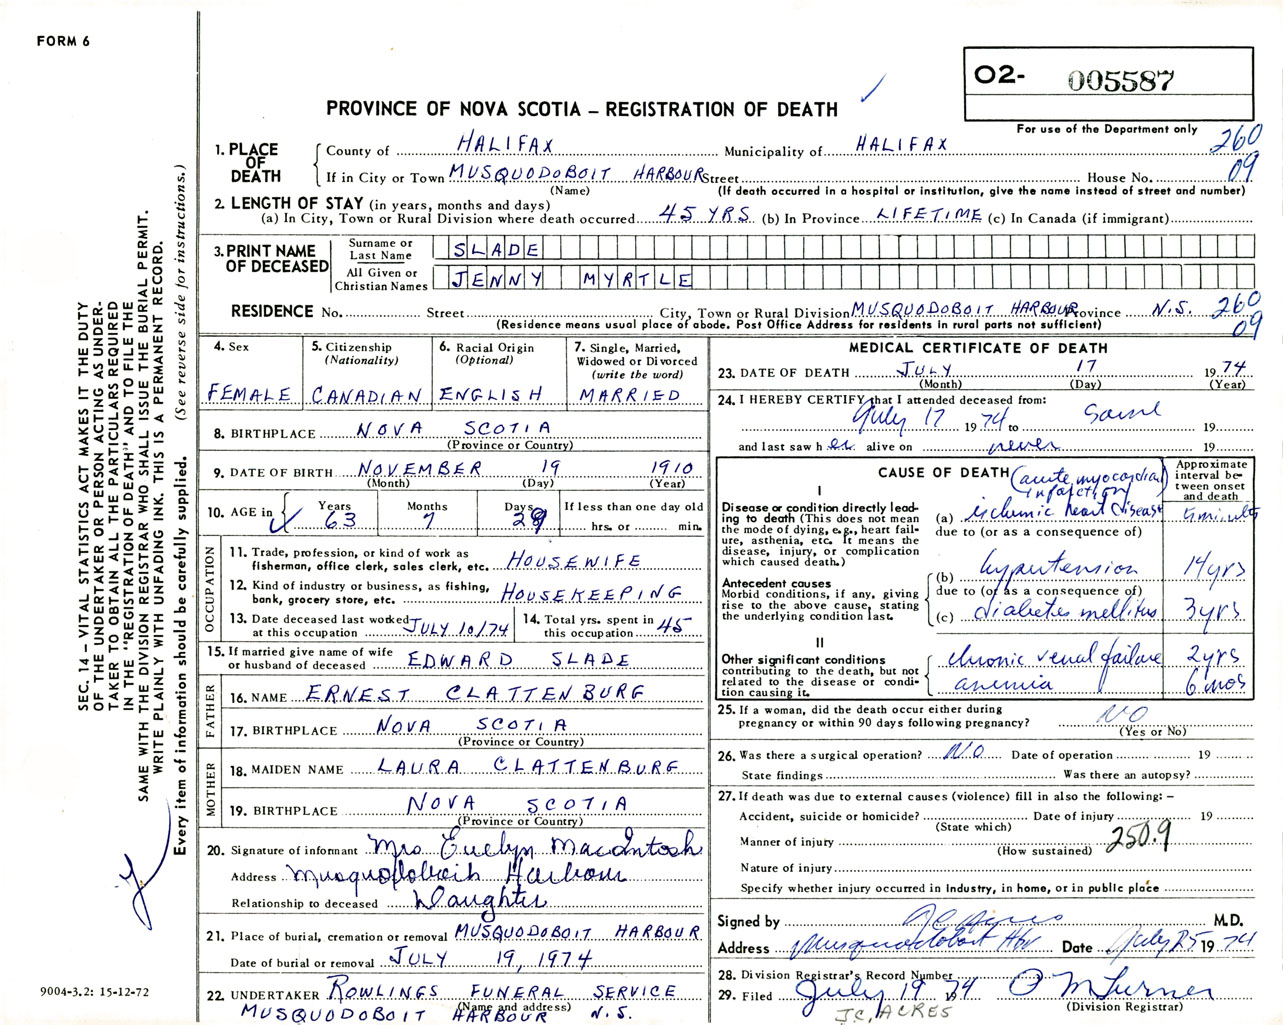 FORM 6
O2- 005587
PROVINCE OF NOVA SCOTIA – REGISTRATION OF DEATH
For use of the Department only
1. PLACE OF DEATH
County of HALIFAX Municipality of HALIFAX 260
If in City or Town MUSQUODOBOIT HARBOUR Street House No. 09
(Name) (If death occurred in a hospital or institution, give the name instead of street and number)
2. LENGTH OF STAY (in years, months and days)
(a) In City, Town or Rural Division where death occurred 45 YRS (b) In Province LIFETIME (c) In Canada (if immigrant)
3. PRINT NAME OF DECEASED
Surname or Last Name SLADE
All Given or Christian Names JENNY MYRTLE
RESIDENCE No. Street City, Town or Rural Division MUSQUODOBOIT HARBOUR Province N.S. 260
(Residence means usual place of abode. Post Office Address for residents in rural parts not sufficient) 09
4. Sex
FEMALE
5. Citizenship
(Nationality)
CANADIAN
6. Racial Origin
(Optional)
ENGLISH
7. Single, Married,
Widowed or Divorced
(write the word)
MARRIED
8. BIRTHPLACE NOVA SCOTIA
(Province or Country)
9. DATE OF BIRTH NOVEMBER 19 1910
(Month) (Day) (Year)
10. AGE in Years Months Days If less than one day old
63 7 29 hrs. or min.
OCCUPATION
11. Trade, profession, or kind of work as
fisherman, office clerk, sales clerk, etc. HOUSEWIFE
12. Kind of industry or business, as fishing,
bank, grocery store, etc. HOUSEKEEPING
13. Date deceased last worked
at this occupation JULY 10/74
14. Total yrs. spent in
this occupation 45
15. If married give name of wife
or husband of deceased EDWARD SLADE
FATHER
16. NAME ERNEST CLATTENBURG
17. BIRTHPLACE NOVA SCOTIA
(Province or Country)
MOTHER
18. MAIDEN NAME LAURA CLATTENBURG
19. BIRTHPLACE NOVA SCOTIA
(Province or Country)
20. Signature of informant Mrs Evelyn MacIntosh
Address Musquodoboit Harbour
Relationship to deceased Daughter
21. Place of burial, cremation or removal MUSQUODOBOIT HARBOUR
Date of burial or removal JULY 19, 1974
22. UNDERTAKER ROWLINGS FUNERAL SERVICE
(Name and address)
MUSQUODOBOIT HARBOUR N.S.
MEDICAL CERTIFICATE OF DEATH
23. DATE OF DEATH JULY 17 1974
(Month) (Day) (Year)
24. I HEREBY CERTIFY that I attended deceased from:
July 17 1974 to same 19
and last saw her alive on never 19
CAUSE OF DEATH (acute myocardial infarction)
Approximate interval between onset and death
I
Disease or condition directly leading to death (This does not mean the mode of dying, e.g., heart failure, asthenia, etc. It means the disease, injury, or complication which caused death.)
(a) ischemic heart disease 5 minutes
due to (or as a consequence of)
Antecedent causes
Morbid conditions, if any, giving rise to the above cause, stating the underlying condition last.
(b) hypertension 14 yrs
due to (or as a consequence of)
(c) diabetes mellitus 3 yrs
II
Other significant conditions contributing to the death, but not related to the disease or condition causing it.
chronic renal failure 2 yrs
anemia 6 mos
25. If a woman, did the death occur either during
pregnancy or within 90 days following pregnancy? NO
(Yes or No)
26. Was there a surgical operation? No Date of operation 19
State findings Was there an autopsy?
27. If death was due to external causes (violence) fill in also the following: –
Accident, suicide or homicide? Date of injury 19
(State which)
Manner of injury 250.9
(How sustained)
Nature of injury
Specify whether injury occurred in Industry, in home, or in public place
Signed by M.D.
Address Musquodoboit Hbr Date July 25 1974
28. Division Registrar's Record Number
29. Filed July 19 1974 O M Turner
(Division Registrar)
J.C. ACRES
SEC. 14 – VITAL STATISTICS ACT MAKES IT THE DUTY
OF THE UNDERTAKER OR PERSON ACTING AS UNDER-
TAKER TO OBTAIN ALL THE PARTICULARS REQUIRED
IN THE "REGISTRATION OF DEATH" AND TO FILE THE
SAME WITH THE DIVISION REGISTRAR WHO SHALL ISSUE THE BURIAL PERMIT.
WRITE PLAINLY WITH UNFADING INK. THIS IS A PERMANENT RECORD.
Every item of information should be carefully supplied. (See reverse side for instructions.)
9004-3.2: 15-12-72